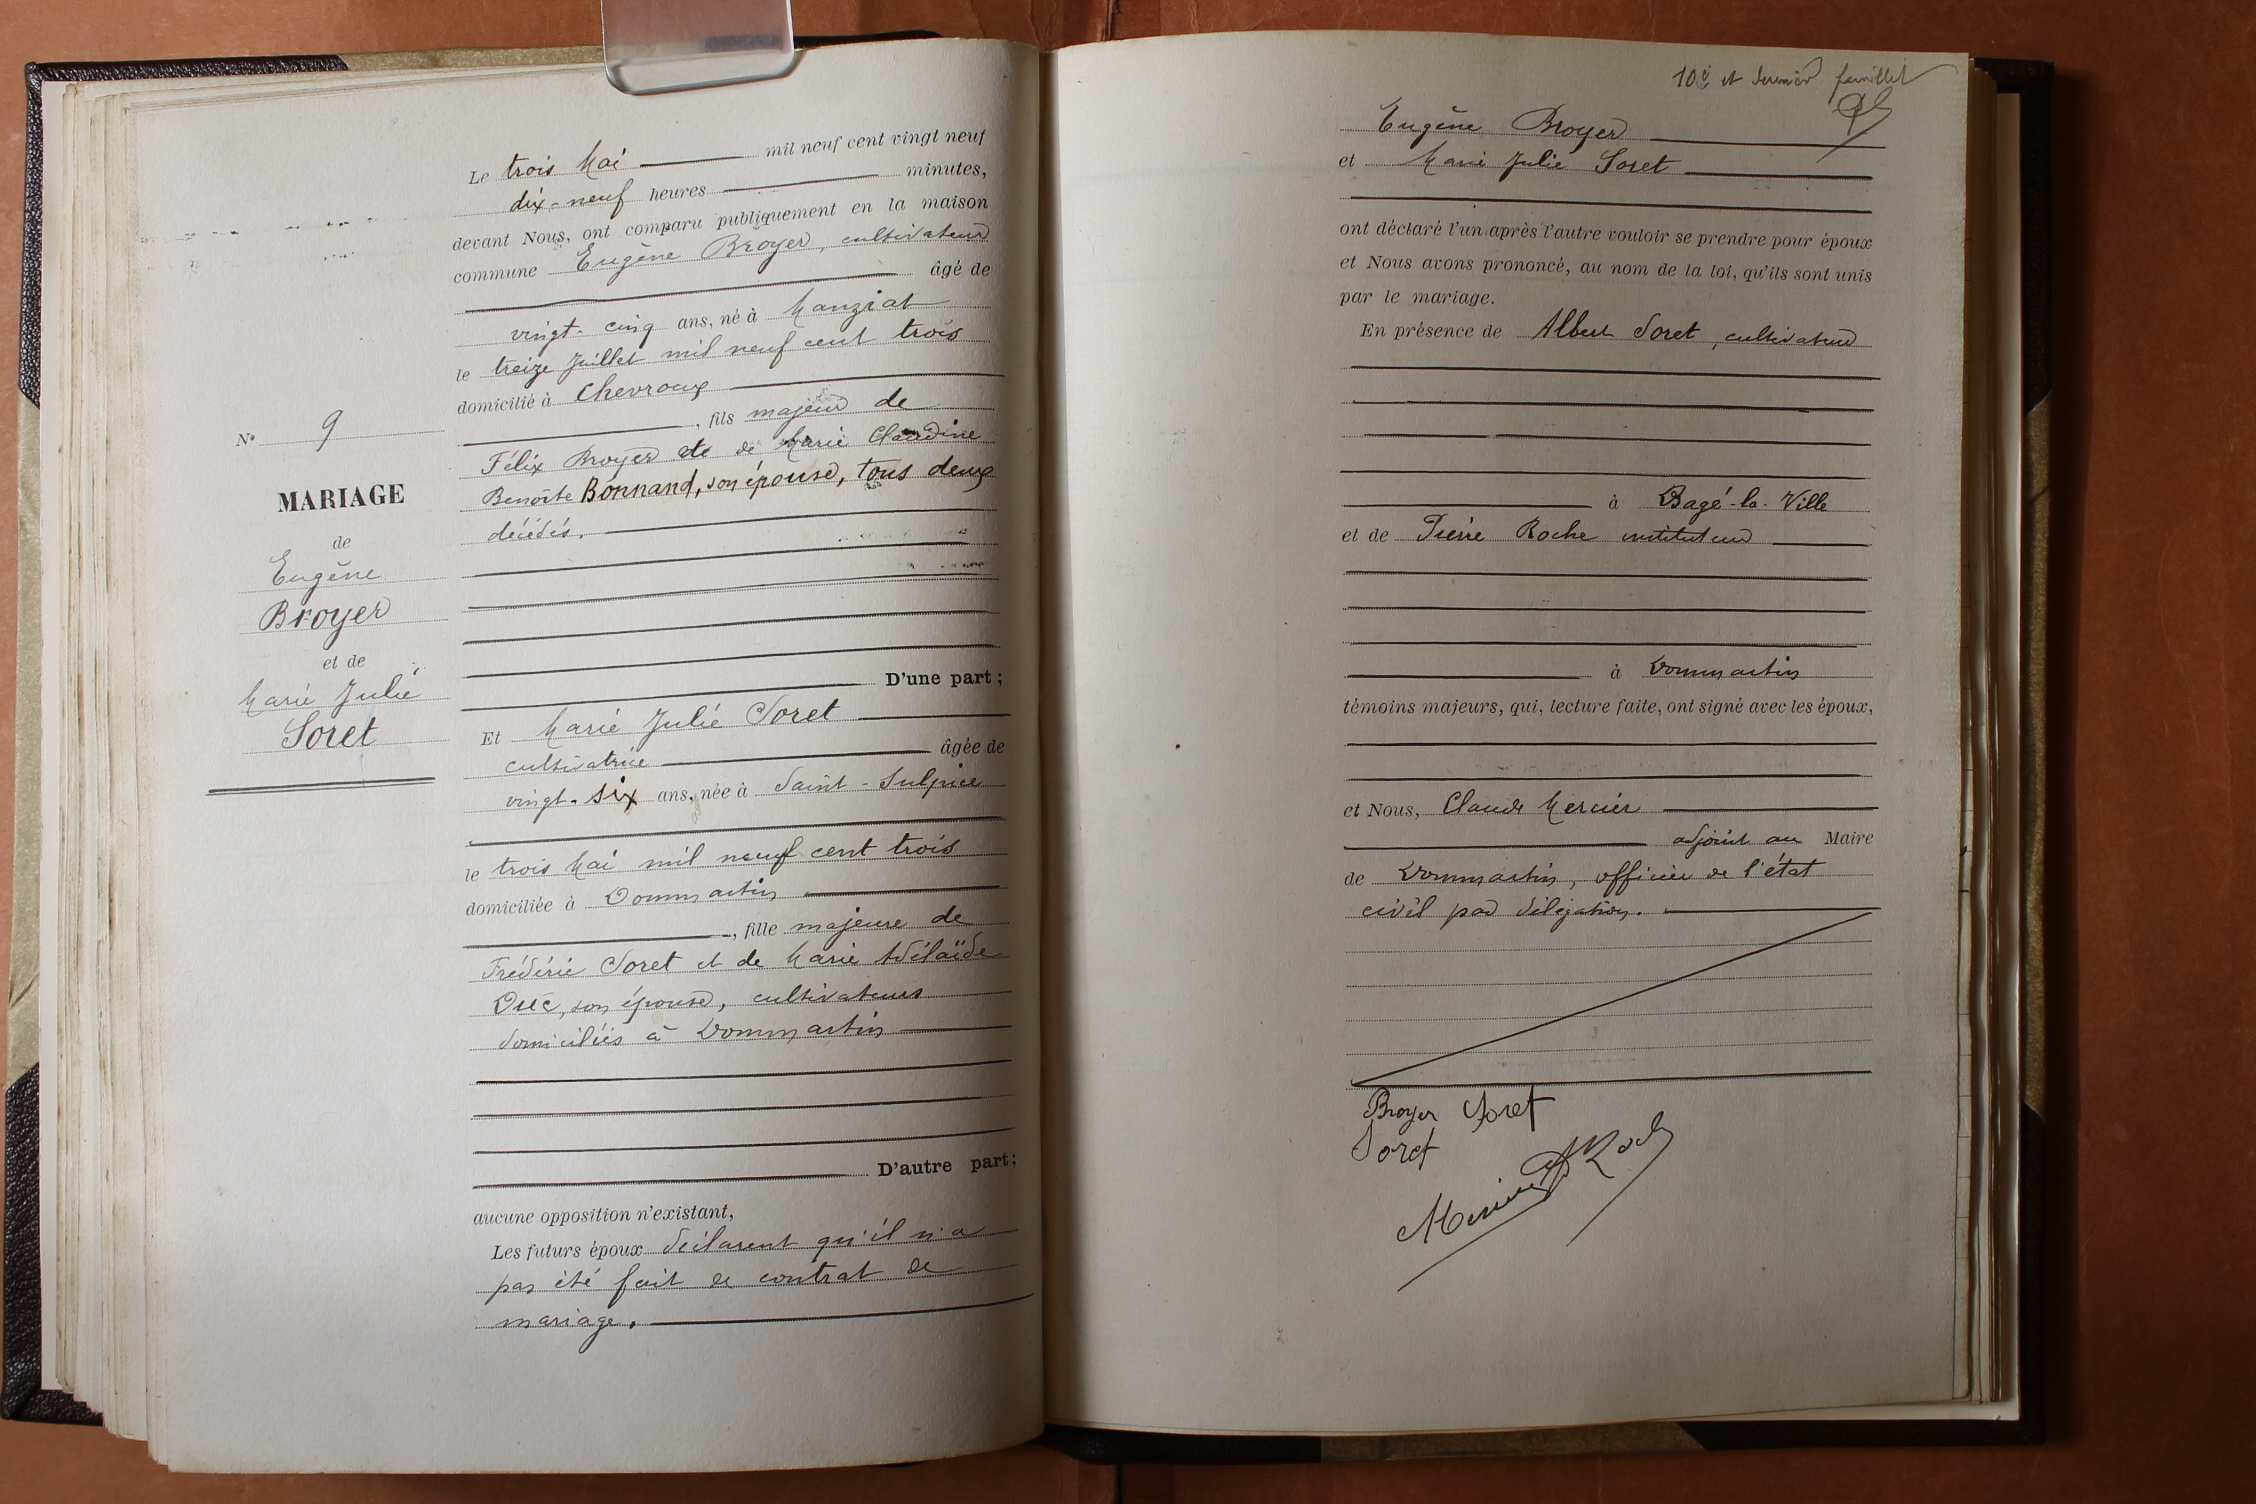 N° 9
MARIAGE
de
Eugène
Broyer
et de
Marie Julie
Soret
Le trois Mai mil neuf cent vingt neuf
dix-neuf heures minutes,
devant Nous, ont comparu publiquement en la maison
commune Eugène Broyer, cultivateur
âgé de
vingt-cinq ans, né à Manziat
le treize Juillet mil neuf cent trois
domicilié à Chevroux
, fils majeur de
Félix Broyer et de Marie Claudine
Benoîte Bonnand, son épouse, tous deux
décédés.
D'une part;
Et Marie Julie Soret
cultivatrice âgée de
vingt-six ans, née à Saint-Sulpice
le trois Mai mil neuf cent trois
domiciliée à Dommartin
, fille majeure de
Frédéric Soret et de Marie Adélaïde
Duc, son épouse, cultivateurs
domiciliés à Dommartin
D'autre part;
aucune opposition n'existant,
Les futurs époux déclarent qu'il n'a
pas été fait de contrat de
mariage.
10e et dernier feuillet
Eugène Broyer
et Marie Julie Soret
ont déclaré l'un après l'autre vouloir se prendre pour époux
et Nous avons prononcé, au nom de la loi, qu'ils sont unis
par le mariage.
En présence de Albert Soret, cultivateur
à Bagé-la-Ville
et de Pierre Roche instituteur
à Dommartin
témoins majeurs, qui, lecture faite, ont signé avec les époux,
et Nous, Claude Mercier
adjoint au Maire
de Dommartin, officier de l'état
civil par délégation.
Broyer Soret
Soret
Mercier Roche